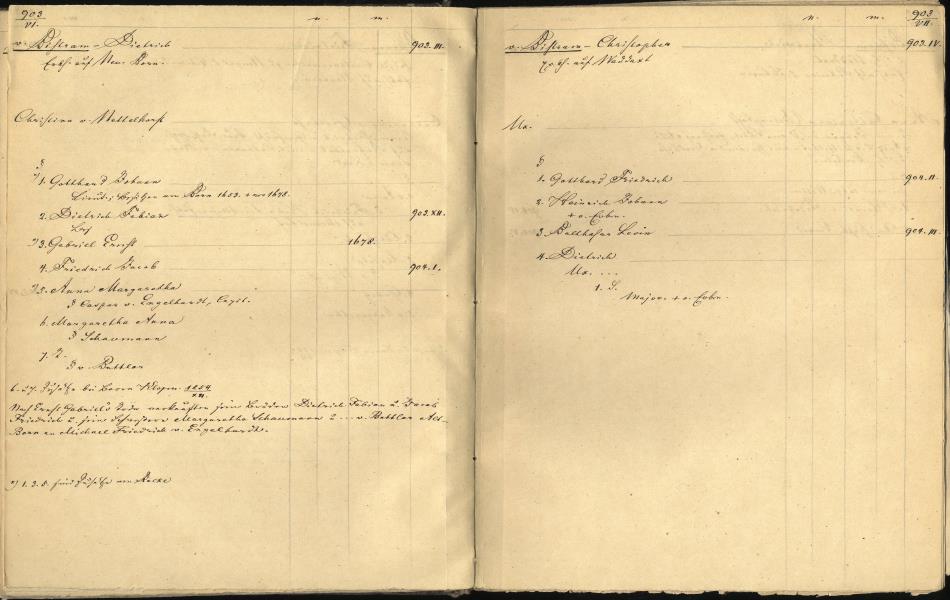 903
VI.
n. m.
v. Bistram – Dietrich 903. III.
Erbh. auf Neu Born.
Christina v. Nettelhorst
§
*) 1. Gotthard Johann
Besitzer von Born 1653. 1678.
2. Dietrich Fabian 903. XII.
*) 3. Gabriel Ernst 1678.
4. Friedrich Jacob 904. I.
*) 5. Anna Margaretha
§ Caspar v. Engelhardt, Capit.
6. Margaretha Anna
§ Schaumann
7. N.
§ v. Buttlar
Zusätze bei Baron Klopm. 1254
XII.
Nach Ernst Gabriel's Tode verkauften sein Bruder Dietrich Fabian u. Jacob
Friedrich u. sein Schwestern Margaretha Schaumann u. ... v. Buttlar Alt-
Born an Michael Friedrich v. Engelhardt.
*) 1. 3. 5. sind Zusätze von Recke
903
VII.
n. m.
v. Bistram – Christopher 903. IV.
Erbh. auf Waddax
Ux.
§
1. Gotthard Friedrich 904. II.
2. Heinrich Johann
+ o. Erben.
3. Balthasar Levin 904. III.
4. Dietrich
Ux. ...
1. S.
Major. + o. Erben.